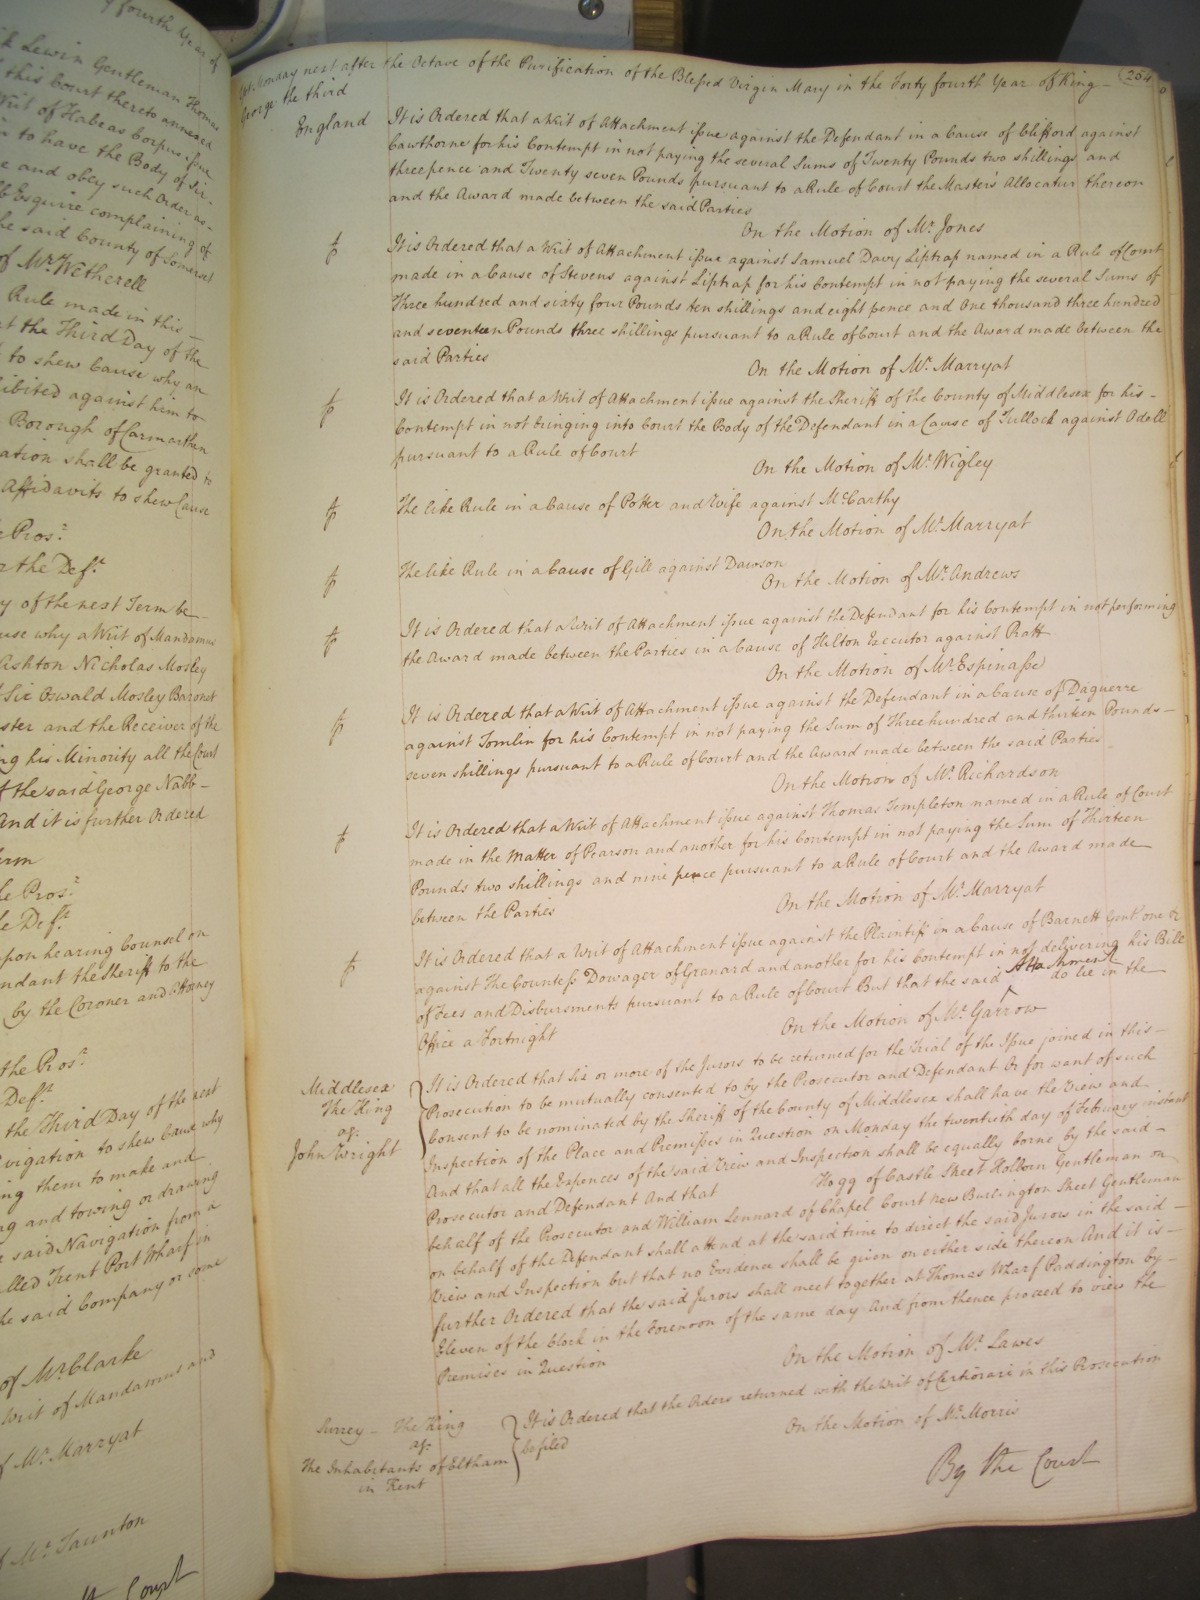 y fourth Year of
k Lewin Gentleman Thomas
this Court thereto annexed
Writ of Habeas Corpus issue
to have the Body of Sir
e and obey such Order as
Esquire complaining of
he said County of Somerset
of Mr. Wetherell
Rule made in this
at the Third Day of the
to shew Cause why an
ibited against him to
Borough of Carmarthen
ation shall be granted to
Affidavits to shew Cause
Pros:r
r the Def:t
y of the next Term be
use why a Writ of Mandamus
Ashton Nicholas Mosley
Sir Oswald Mosley Baronet
ster and the Receiver of the
ng his Minority all the Court
f the said George Nabb
And it is further Ordered
erm
he Pros:r
e Def:t
pon hearing Counsel on
ndant the Sheriff to the
by the Coroner and Attorney
the Pros:r
Def:t
the Third Day of the next
vigation to shew Cause why
ing them to make and
ng and towing or drawing
said Navigation from a
lled Trent Port Wharf in
he said Company or some
of Mr. Clarke
Writ of Mandamus and
f Mr. Marryat
f Mr. Taunton
Court
254
Yet Monday next after the Octave of the Purification of the Blessed Virgin Mary in the Forty fourth Year of King
George the third
England
It is Ordered that a Writ of Attachment issue against the Defendant in a Cause of Clifford against
Cawthorne for his Contempt in not paying the several Sums of Twenty Pounds two shillings and
threepence and Twenty seven Pounds pursuant to a Rule of Court the Master's Allocatur thereon
and the Award made between the said Parties
On the Motion of Mr. Jones
It is Ordered that a Writ of Attachment issue against Samuel Davy Liptrap named in a Rule of Court
made in a Cause of Stevens against Liptrap for his Contempt in not paying the several Sums of
Three hundred and sixty four Pounds ten shillings and eight pence and One thousand three hundred
and seventeen Pounds three shillings pursuant to a Rule of Court and the Award made between the
said Parties
On the Motion of Mr. Marryat
It is Ordered that a Writ of Attachment issue against the Sheriff of the County of Middlesex for his
Contempt in not bringing into Court the Body of the Defendant in a Cause of Tullock against Odell
pursuant to a Rule of Court
On the Motion of Mr. Wigley
The like Rule in a Cause of Potter and Wife against McCarthy
On the Motion of Mr. Marryat
The like Rule in a Cause of Gill against Dawson
On the Motion of Mr. Andrews
It is Ordered that a Writ of Attachment issue against the Defendant for his Contempt in not performing
the Award made between the Parties in a Cause of Hilton Executor against Pratt
On the Motion of Mr. Espinasse
It is Ordered that a Writ of Attachment issue against the Defendant in a Cause of Daguerre
against Tomlin for his Contempt in not paying the Sum of Three hundred and thirteen Pounds
seven shillings pursuant to a Rule of Court and the Award made between the said Parties
On the Motion of Mr. Richardson
It is Ordered that a Writ of Attachment issue against Thomas Templeton named in a Rule of Court
made in the Matter of Pearson and another for his Contempt in not paying the Sum of Thirteen
Pounds two shillings and nine pence pursuant to a Rule of Court and the Award made
between the Parties
On the Motion of Mr. Marryat
It is Ordered that a Writ of Attachment issue against the Plaintiff in a Cause of Barnett Gent. one &c
against The Countess Dowager of Granard and another for his Contempt in not delivering his Bill
of Fees and Disbursments pursuant to a Rule of Court But that the said Attachment do lie in the
Office a Fortnight
On the Motion of Mr. Garrow
Middlesex
The King
agt.
John Wright
It is Ordered that Six or more of the Jurors to be returned for the Trial of the Issue joined in this
Prosecution to be mutually consented to by the Prosecutor and Defendant Or for want of such
Consent to be nominated by the Sheriff of the County of Middlesex shall have the View and
Inspection of the Place and Premisses in Question on Monday the twentieth day of February instant
And that all the Expences of the said View and Inspection shall be equally borne by the said
Prosecutor and Defendant And that Hogg of Castle Street Holborn Gentleman on
behalf of the Prosecutor and William Lennard of Chapel Court New Burlington Street Gentleman
on behalf of the Defendant shall attend at the said time to direct the said Jurors in the said
View and Inspection but that no Evidence shall be given on either side thereon And it is
further Ordered that the said Jurors shall meet together at Thomas Wharf Paddington by
Eleven of the Clock in the Forenoon of the same day And from thence proceed to view the
Premises in Question
On the Motion of Mr. Lawes
Surrey - The King
agt.
The Inhabitants of Eltham
in Kent
It is Ordered that the Orders returned with the Writ of Certiorari in this Prosecution
be filed
On the Motion of Mr. Morris
By the Court